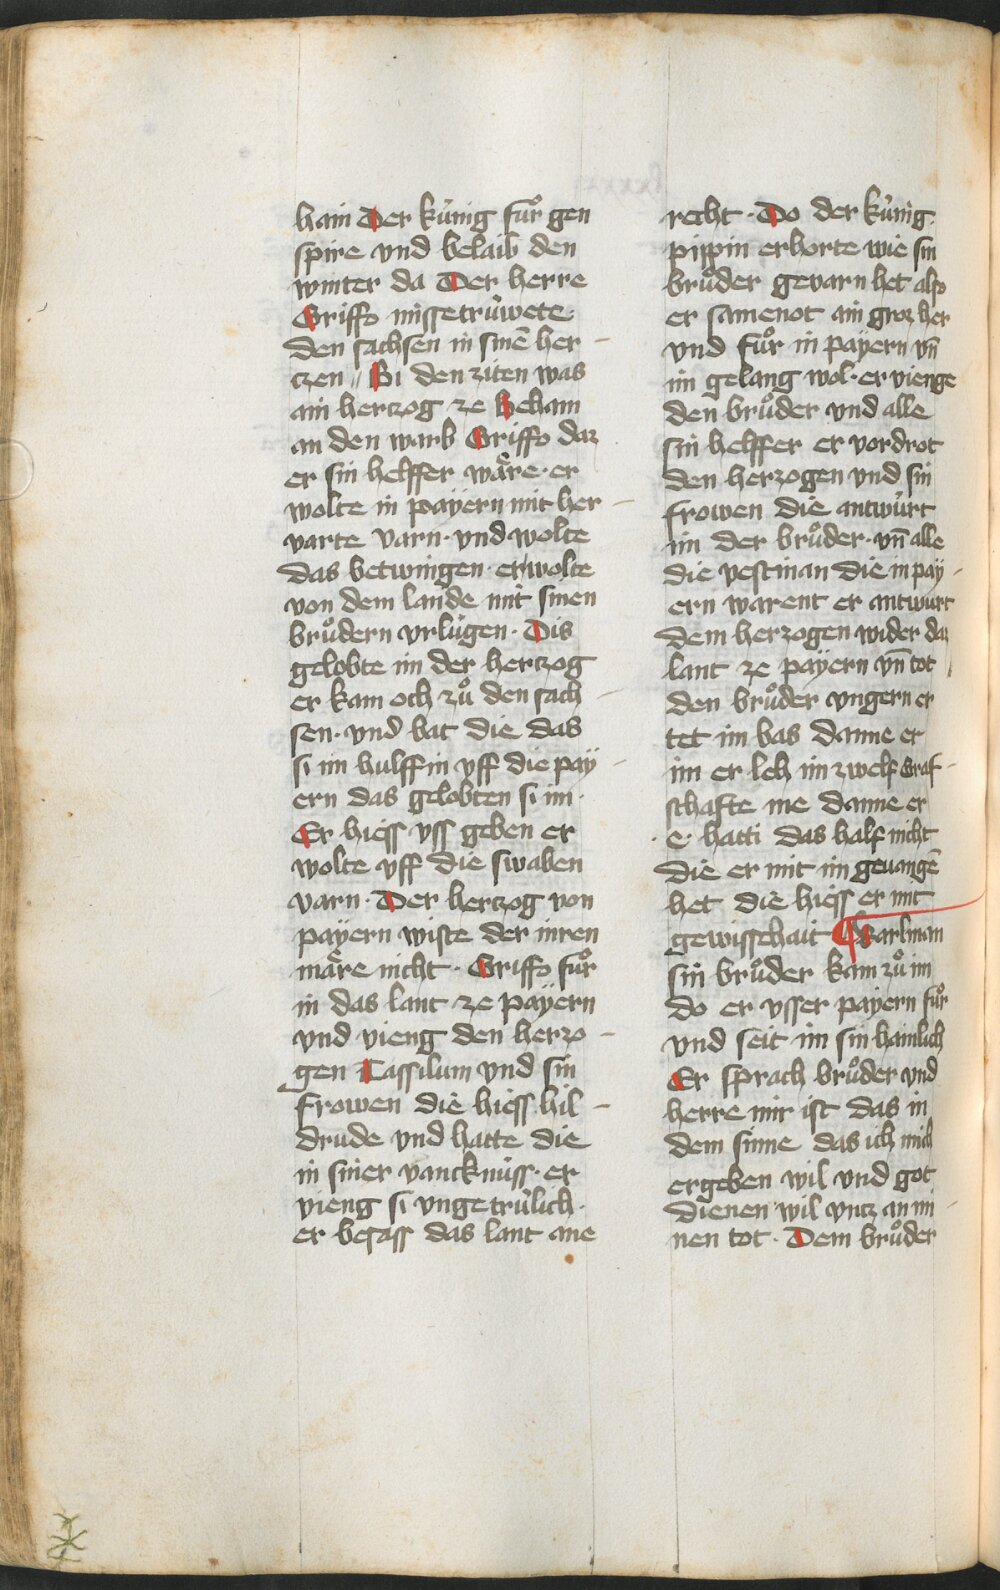 hain Der kúnig fuͦr gen
spire vnd belaib den
winter da Der herre
Griffo missetrúwete
den sachsen in sinē her -
czen Bi den ziten was
ain hertzog ze Beham
an den warb Griffo daz
er sin helffer wäre · er
wolte in payern mit her -
varte varn · vnd wolte
das betwingen · er wolte
von dem lande mit sinen
bruͦdern vrlúgen · Dis
gelobte im der hertzog
er kam och zuͦ den sach -
sen · vnd bat die das
si im hulffin vff die pay -
ern das gelobten si im ·
Er hiess vss geben er
wolte vff die swaben
varn · Der hertzog von
payern wiste der inren
märe nicht · Griffo fuͦr
in das lant ze payern
vnd vieng den herzo -
gen Tassilum vnd sin
frowen die hiess hil -
drude vnd hatte die
in siner vancknúss · er
vieng si vngetrúlich ·
er besass das lant ane
recht · Do der kúnig
pippin erhorte wie sin
bruͦder gevarn het also
er samenot ain groz her
vnd fuͦr in payern vn̄
im gelang wol · er vienge
den bruͦder vnd alle
sin helffer er vordrot
den herzogen vnd sin
frowen die antwúrt
im der bruͦder · vn̄ alle
die vestman die in pay -
ern warent er antwurt
dem herzogen wider daz
lant ze payern vn̄ tot
den bruͦder vngern er
tet im bas danne er
im er leh im zwelf Graf -
schafte me danne er
e · hatti das half nicht
die er mit im geuangē
het die hiess er mit
gewisshait Karlman
sin bruͦder kam zuͦ im
do er vsser payern fuͦr
vnd seit im sin hainlich
Er sprach bruͦder vnd
herre mir ist das in
dem sinne das ich mich
ergeben wil vnd got
dienen wil vntz an mi -
nen tot · Dem bruͦder